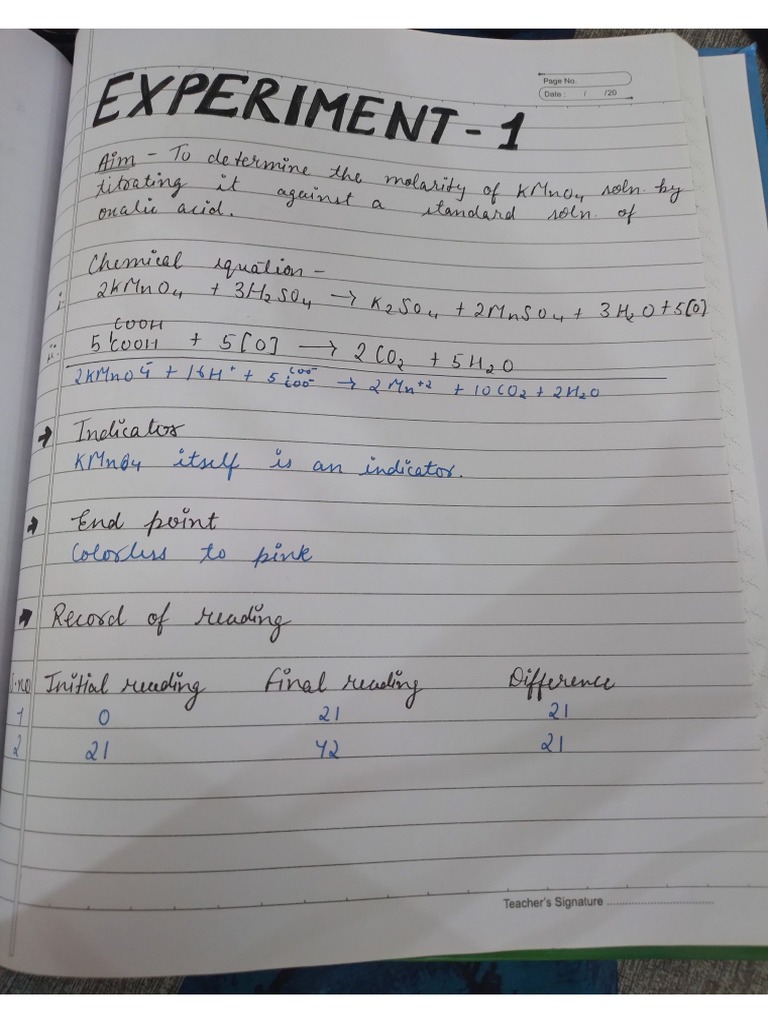 Page No.
Date : / /20
EXPERIMENT - 1
Aim - To determine the molarity of KMnO4 soln. by
titrating it against a standard soln. of
oxalic acid.
Chemical equation -
i. 2KMnO4 + 3H2SO4 → K2SO4 + 2MnSO4 + 3H2O + 5[O]
COOH
ii. 5 COOH + 5[O] → 2CO2 + 5H2O
2KMnO4⁻ + 16H⁺ + 5 COO⁻ COO⁻ → 2Mn⁺² + 10CO2 + 2H2O
→ Indicator
KMnO4 itself is an indicator.
→ End point
Colorless to pink
→ Record of reading
S.no Initial reading Final reading Difference
1 0 21 21
2 21 42 21
Teacher's Signature ....................................